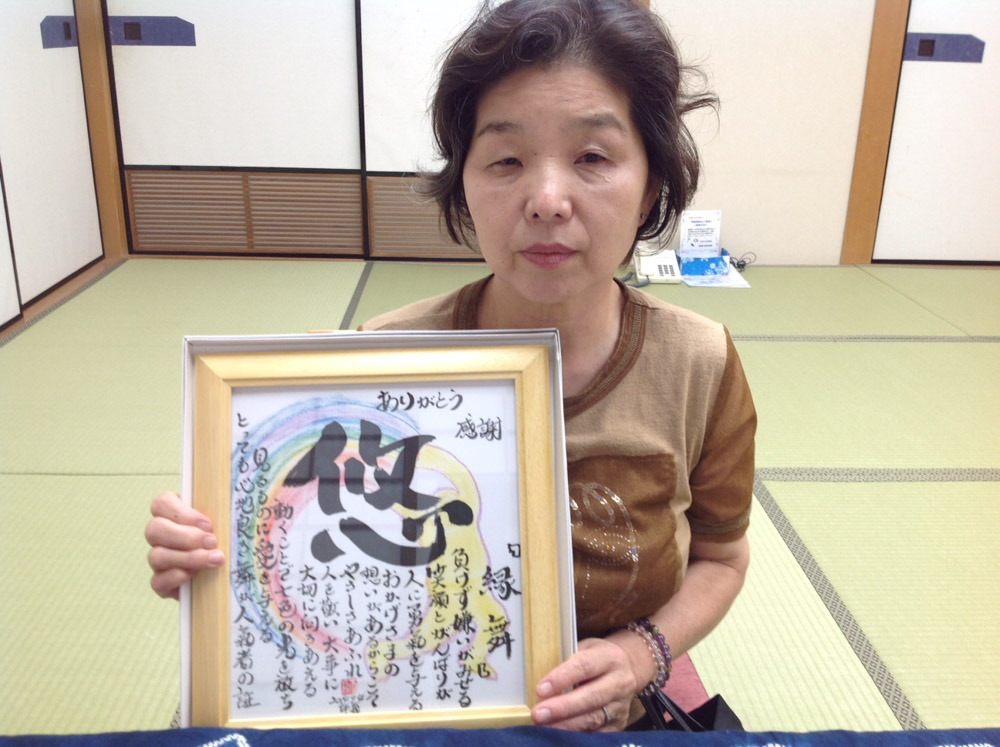 ありがとう
感謝
悠
縁
舞
負けず嫌いがみせる
笑顔とがんばりが
人に勇氣を与える
おかげさまの
想いがあるからこそ
やさしさあふれ
人を敬い大事に
大切に向きあえる
動くことで七色の光を放ち
見るものに愛を与える
とっても心地良き舞が人氣者の証